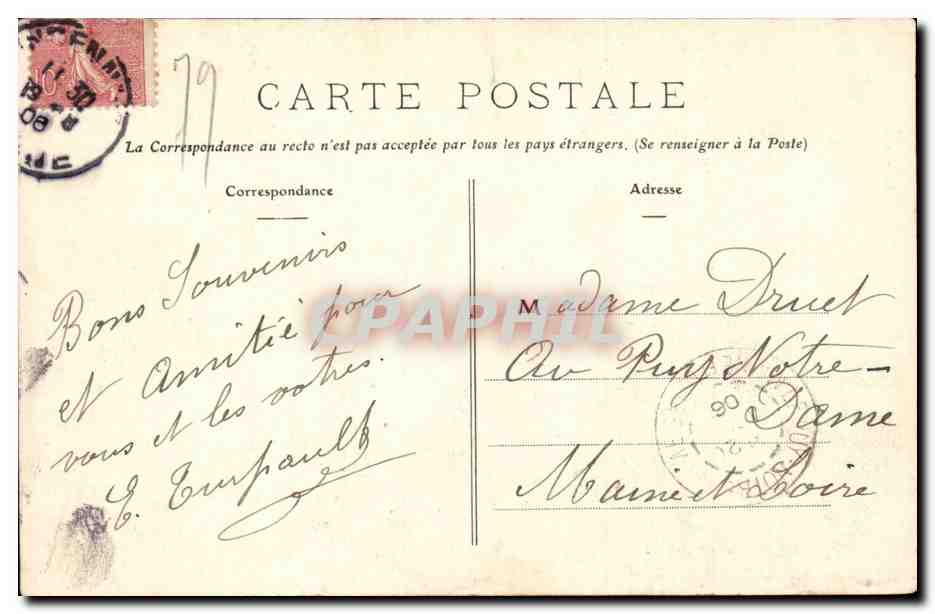 10
11 30
79
CARTE POSTALE
La Correspondance au recto n'est pas acceptée par tous les pays étrangers. (Se renseigner à la Poste)
Correspondance
Bons Souvenirs
et Amitié pour
vous et les votres.
E. Turpault
Adresse
Madame Druet
Au Puy Notre-
Dame
Maine et Loire
CPAPHIL